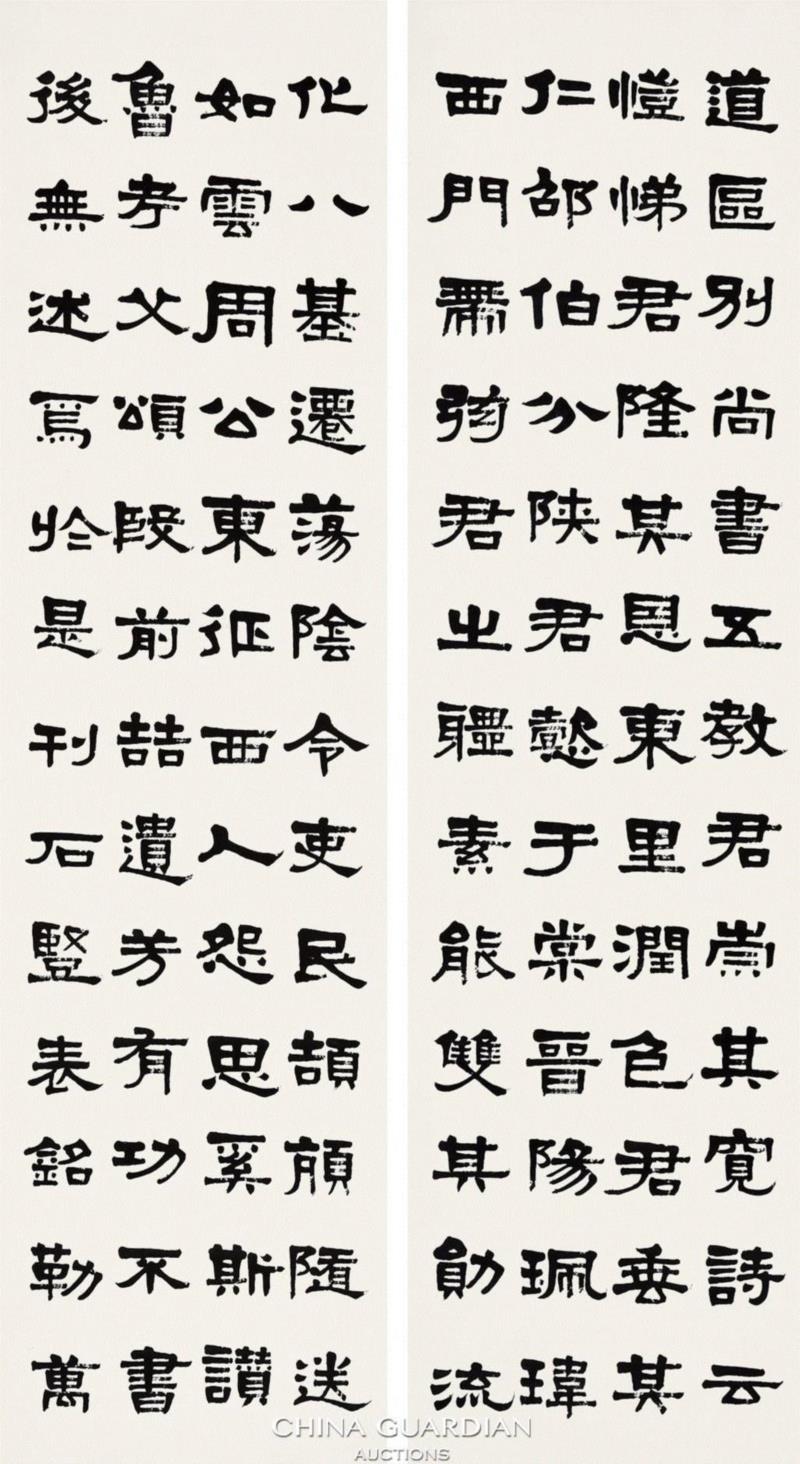 道區別尚書五教君崇其寬詩云
愷悌君隆其恩東里潤色君垂其
仁邵伯分陝君懿于棠晉陽珮瑋
西門帶弦君之體素能雙其勛流
化八基遷蕩陰令吏民頡頏隨送
如雲周公東征西人怨思奚斯讚
魯考父頌殷前喆遺芳有功不書
後無述焉於是刊石豎表銘勒萬
CHINA GUARDIAN
AUCTIONS